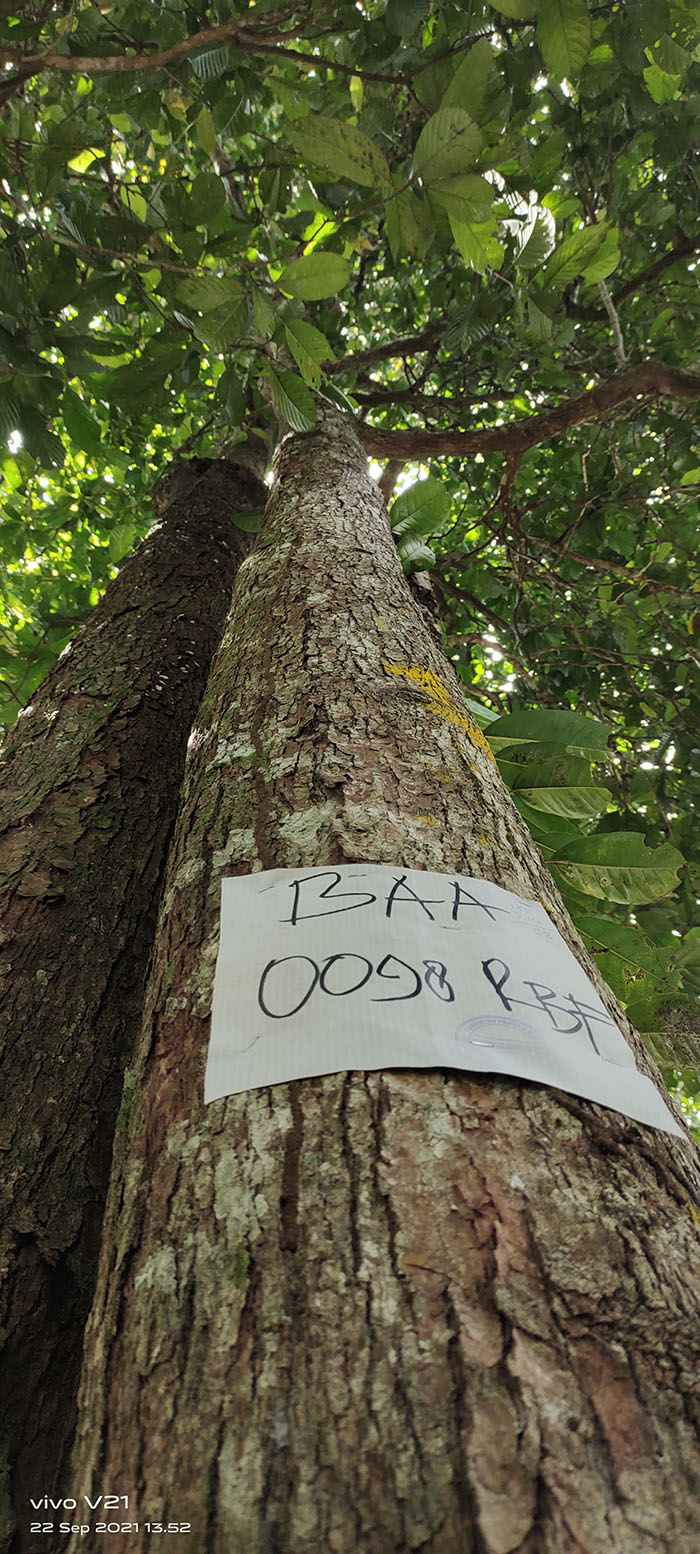 BAA
0098 RBF
vivo V21
22 Sep 2021 13.52